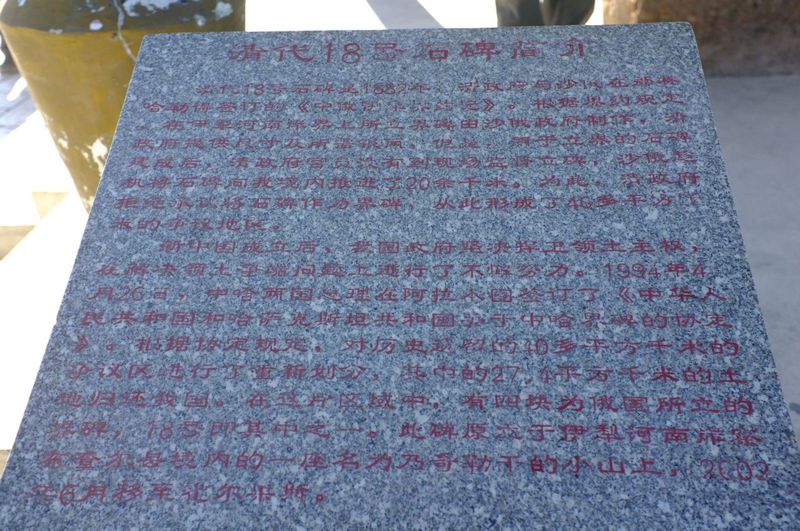 清代18号石碑简介
清代18号石碑是1882年,清政府与沙俄在
哈 签订的《中俄 》。根据界约规定
,在伊犁河南岸界上所立界碑由沙俄政府制作,清
政府提供尺寸及所需银两,但是,用于立界的石碑
建成后,清政府官员没有到现场监督立碑,沙俄趁
机将石碑向我境内推进了20余千米。为此,清政府
拒绝承认将石碑作为界碑,从此形成了40多平方千
米的争议地区。
新中国成立后,我国政府坚决捍卫领土主权,
在解决领土争端问题上进行了不懈努力。1994年4
月26日,中哈两国总理在阿拉木图签订了《中华人
民共和国和哈萨克斯坦共和国关于中哈界碑的协定
》。根据协定规定,对历史 的40多平方千米的
争议区进行了重新划分,其中的27.4平方千米的土
地归还我国。在这片区域中,有四块为俄国所立的
界碑,18号即其中之一。此碑原立于伊犁河南岸察
布查尔县境内的一座名为乃奇勒干的小山上,2002
年6月移至 。